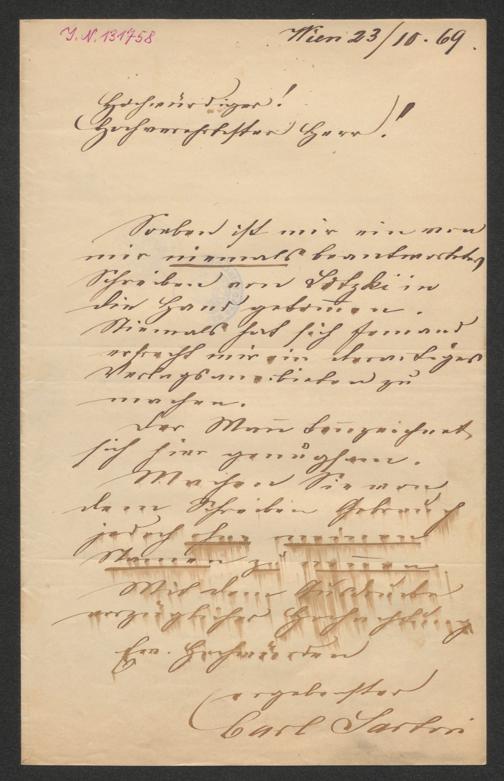 I. N. 131758
Wien 23/10. 69.
Hochwürdiger!
Hochverehrtester Herr!
Soeben ist mir ein von
mir niemals beantwortetes
Schreiben von Sötzki in
die Hand gekommen.
Niemals hat sich Jemand
erfrecht mir ein derartiges
Verlagsanerbieten zu
machen.
Der Mann kennzeichnet
sich hier genugsam.
Machen Sie von
dem Schreiben Gebrauch
jedoch ohne meinen
Namen zu nennen.
Mit dem Ausdrucke
vorzüglicher Hochachtung
Ew. Hochwürden
ergebenster
Carl Sartori